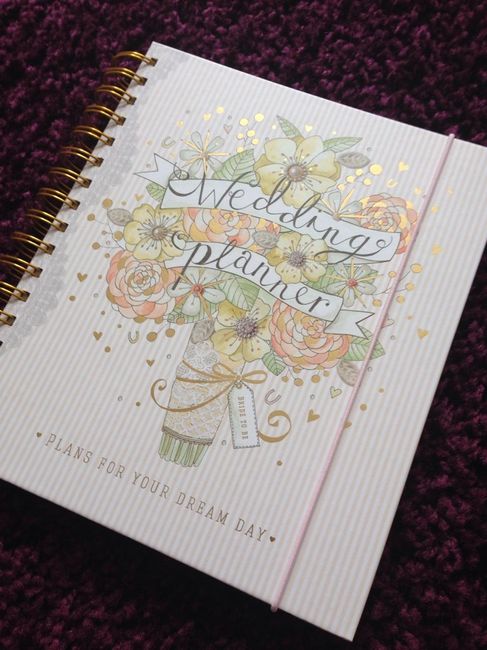 Wedding
planner
BRIDE TO BE
PLANS FOR YOUR DREAM DAY